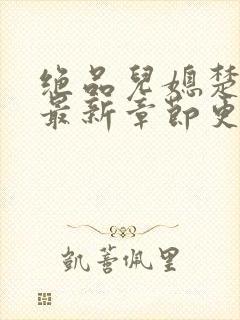 绝品儿媳楚
最新章节更
凱蒂佩里